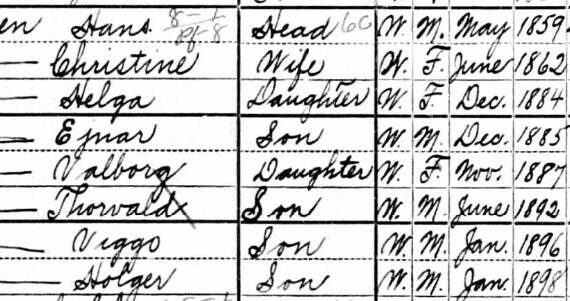 en Hans 8-1 Pf-8 Head 60 W. M. May 1859
— Christine Wife W. F. June 1862
— Helga Daughter W. F. Dec. 1884
— Ejnar Son W. M. Dec. 1885
— Valborg Daughter W. F. Nov. 1887
— Thorvald x Son W. M. June 1892
— Viggo Son W. M. Jan. 1896
— Holger Son W. M. Jan. 1898